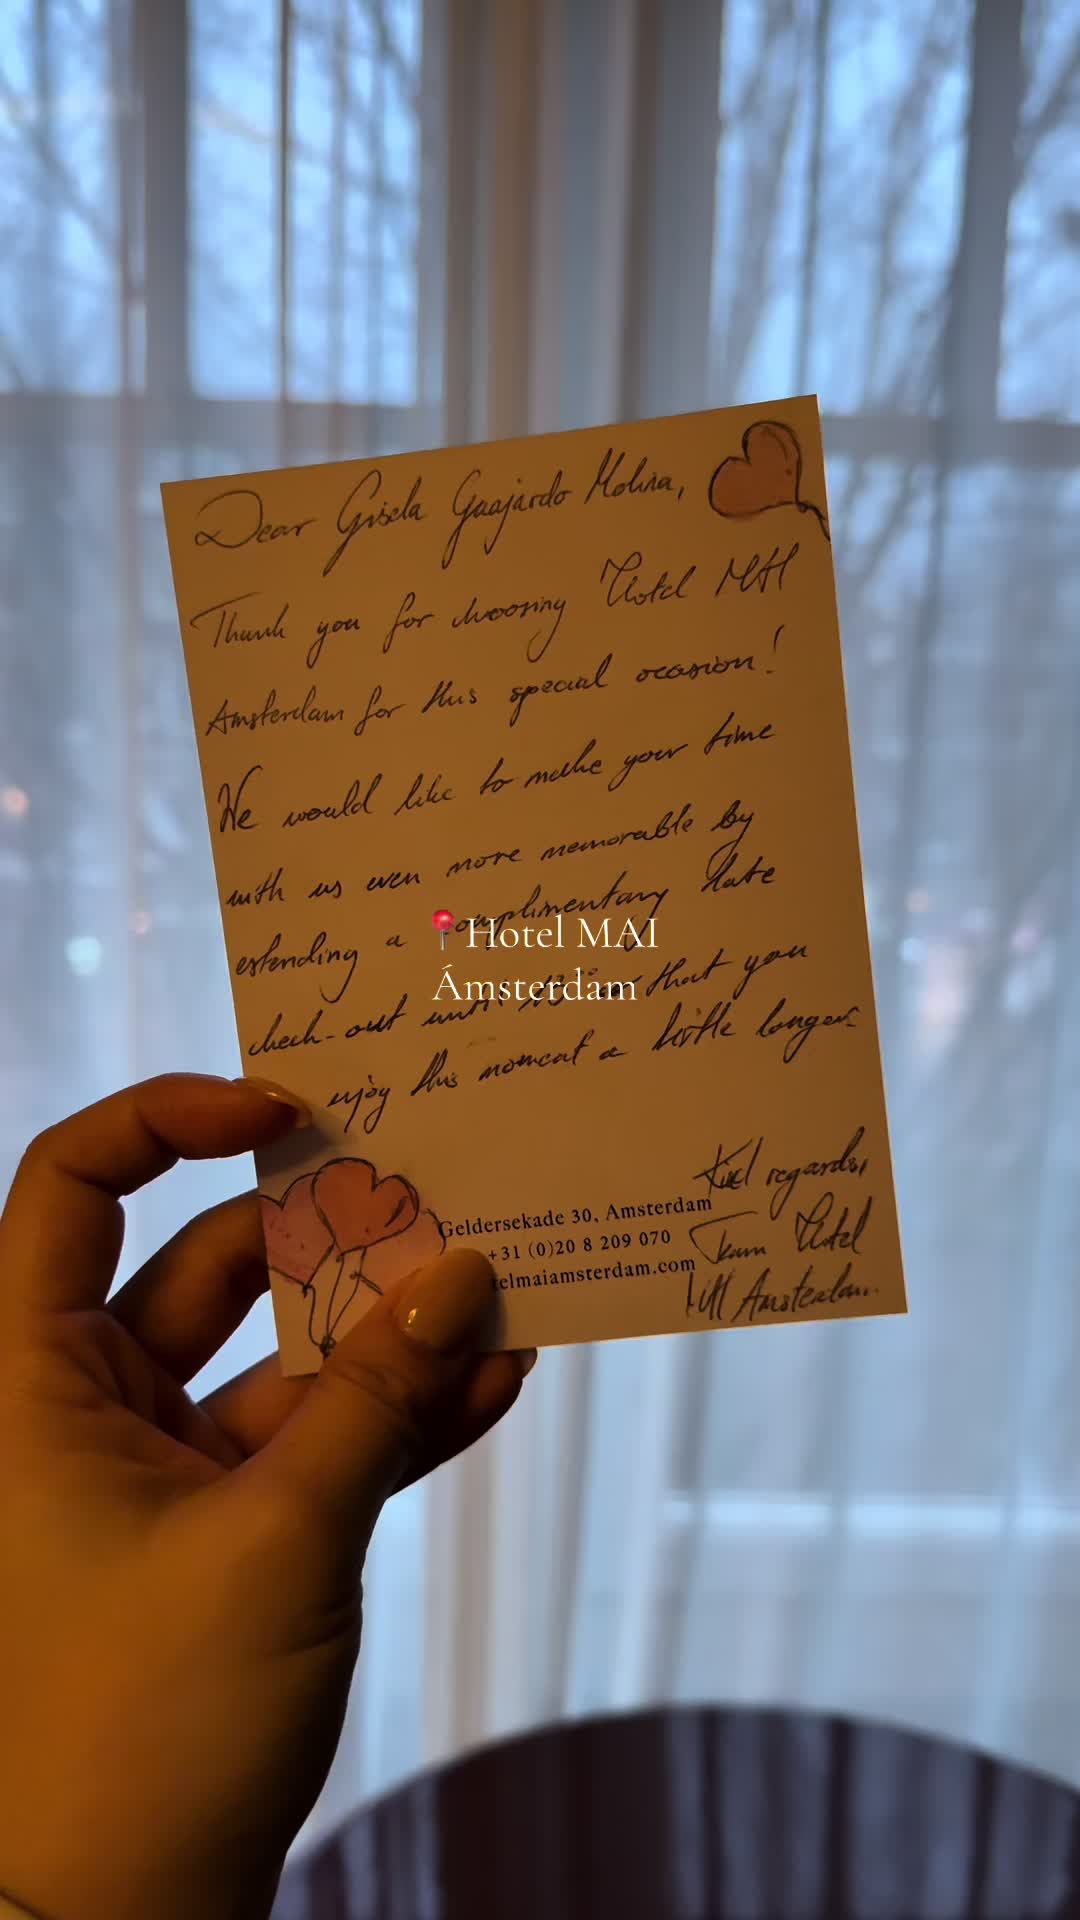 Dear Gisela Guajardo Molina,
Thank you for choosing Hotel MAI
Amsterdam for this special ocasion!
We would like to make your time
with us even more memorable by
extending a complimentary late
check-out until so that you
enjoy this moment a little longer.
📍Hotel MAI
Ámsterdam
Kind regards,
Team Hotel
MAI Amsterdam.
Geldersekade 30, Amsterdam
+31 (0)20 8 209 070
telmaiamsterdam.com